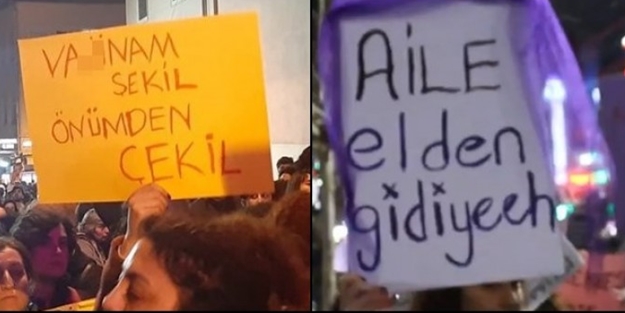 ŞEKİL
ÖNÜMDEN
ÇEKİL
AİLE
elden
gidiyeeh